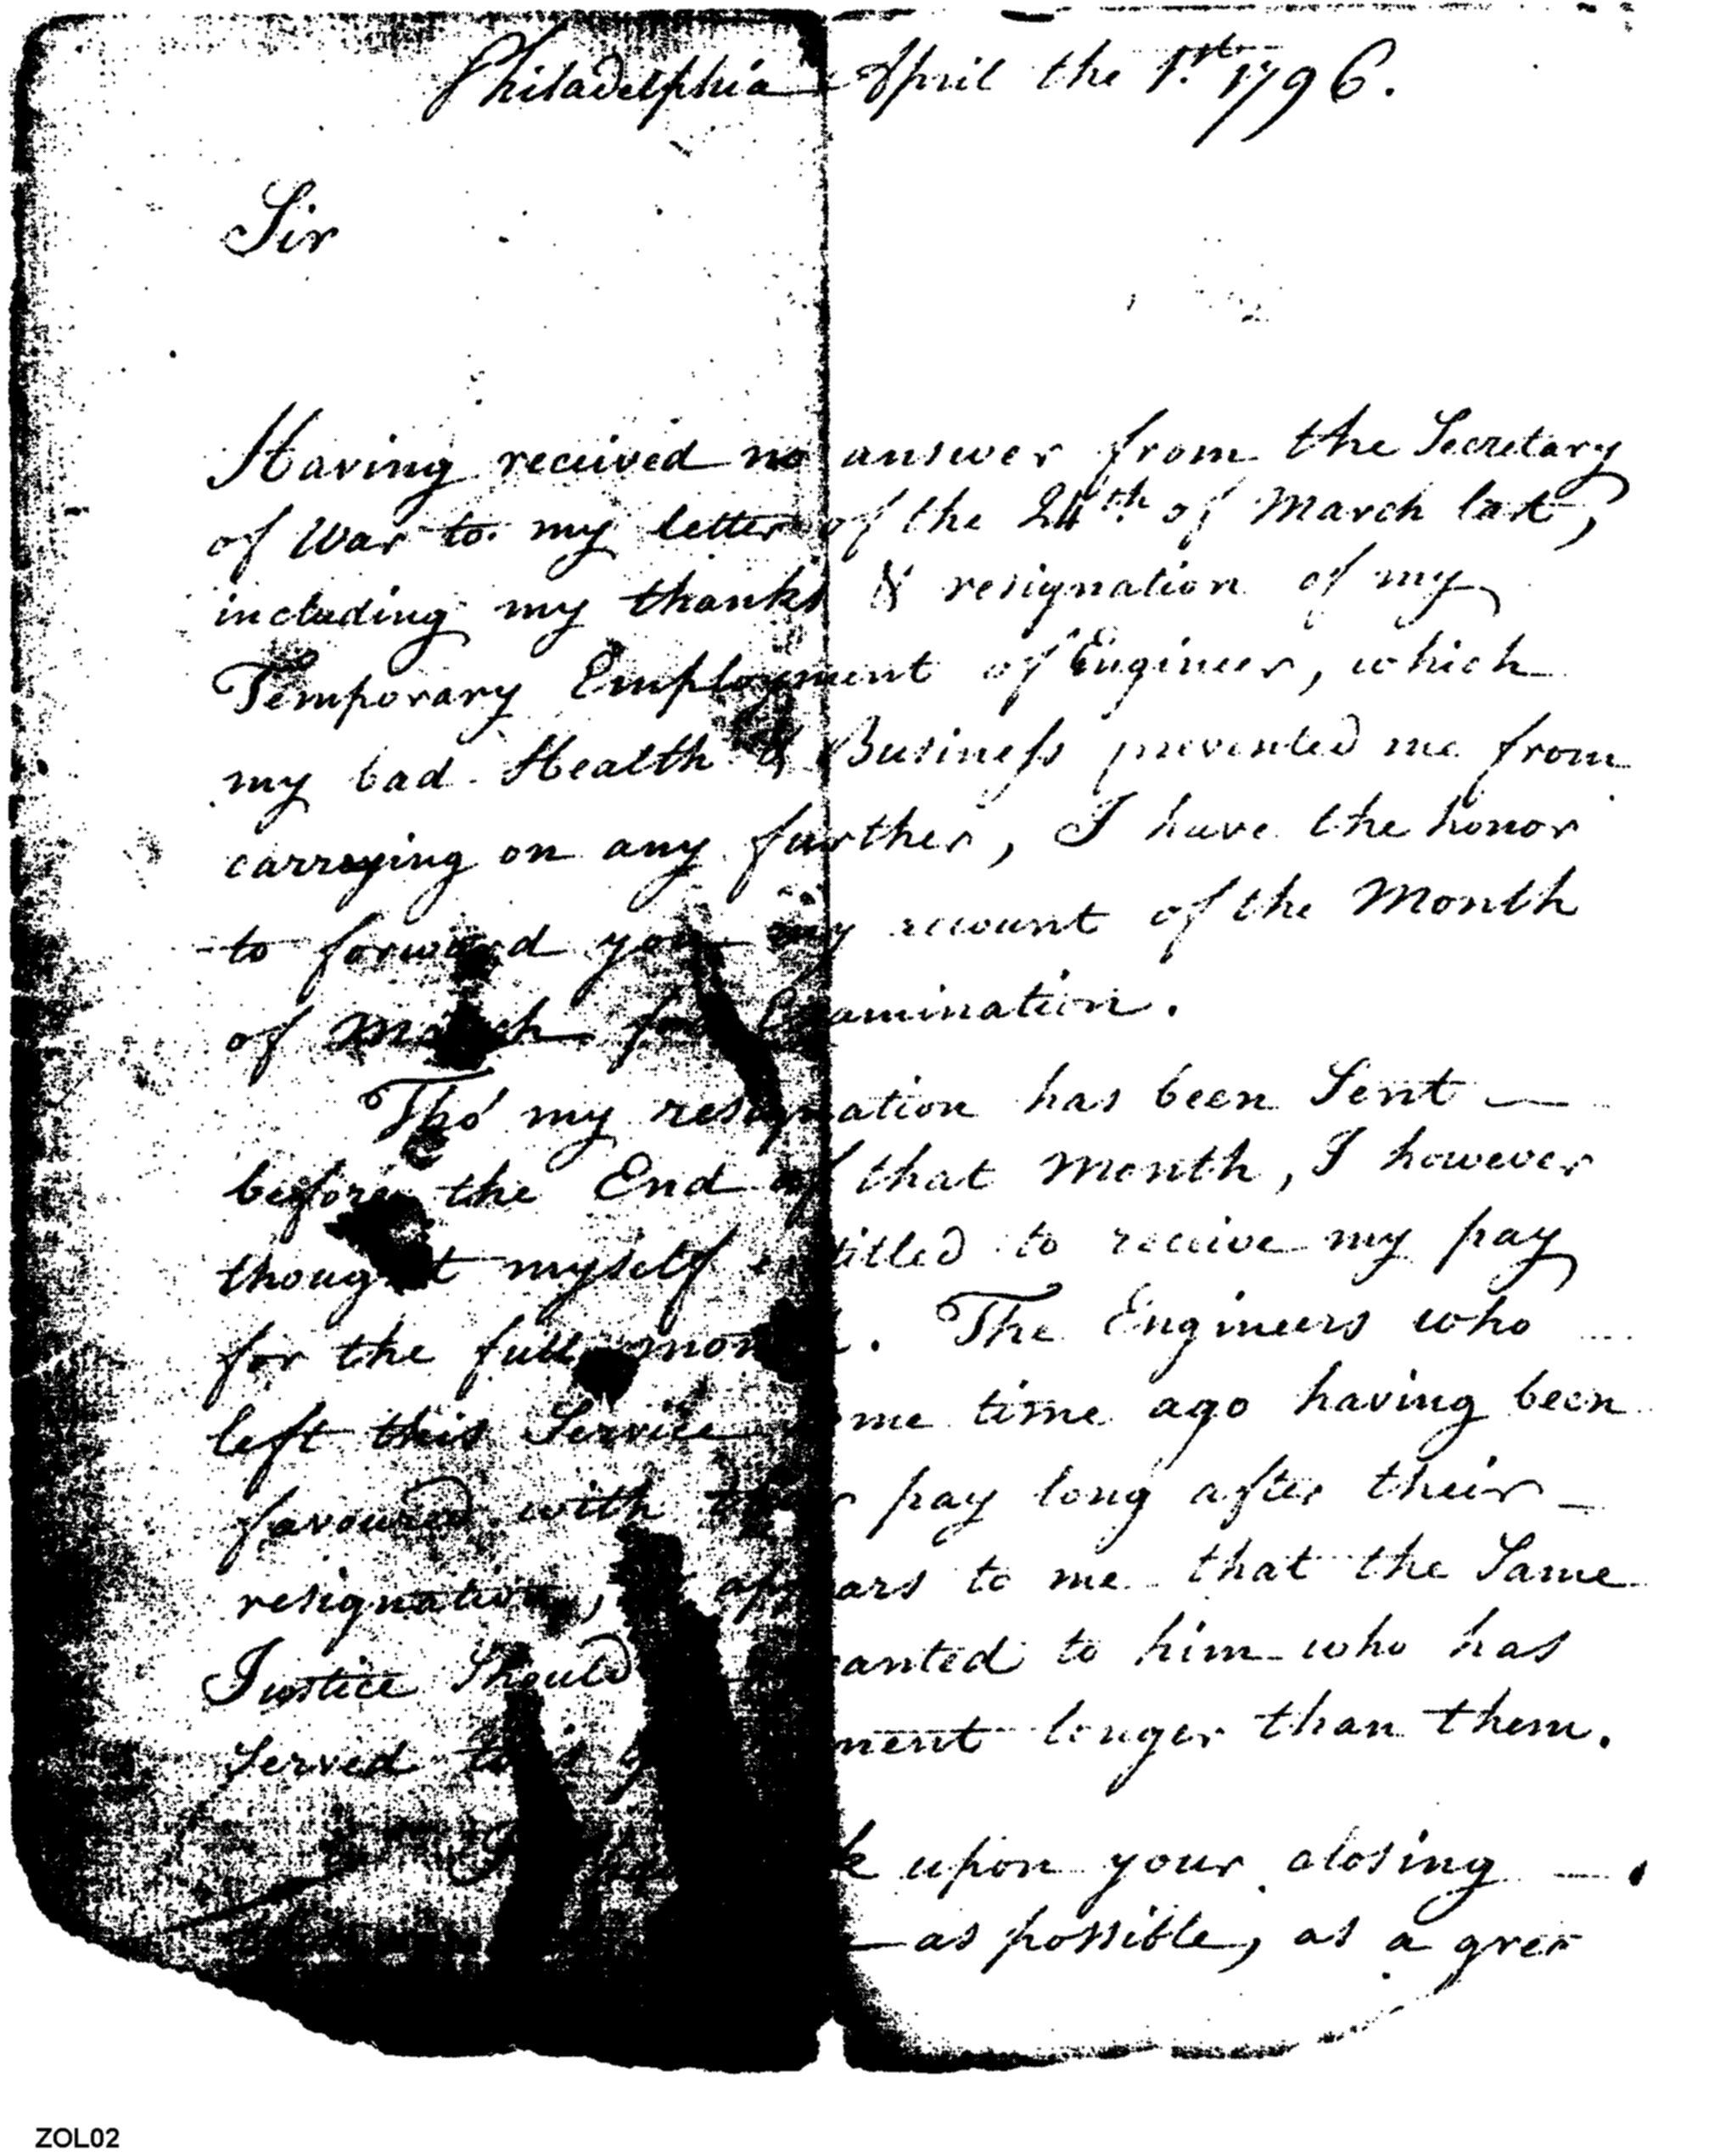 Philadelphia April the 1st. 1796.
Sir
Having received no answer from the Secretary
of War to my letter of the 24th. of March last,
including my thanks & resignation of my
Temporary Employment of Engineer, which
my bad Health & Business prevented me from
carrying on any further, I have the honor
to forward you my account of the Month
of March for Examination.
Tho' my resignation has been Sent —
before the End of that Month, I however
thought myself entitled to receive my pay
for the full month. The Engineers who
left this Service some time ago having been
favoured with their pay long after their —
resignation, appears to me that the Same
Justice Should granted to him who has
Served this longer than them.
upon your closing —
— as possible, as a
ZOL02